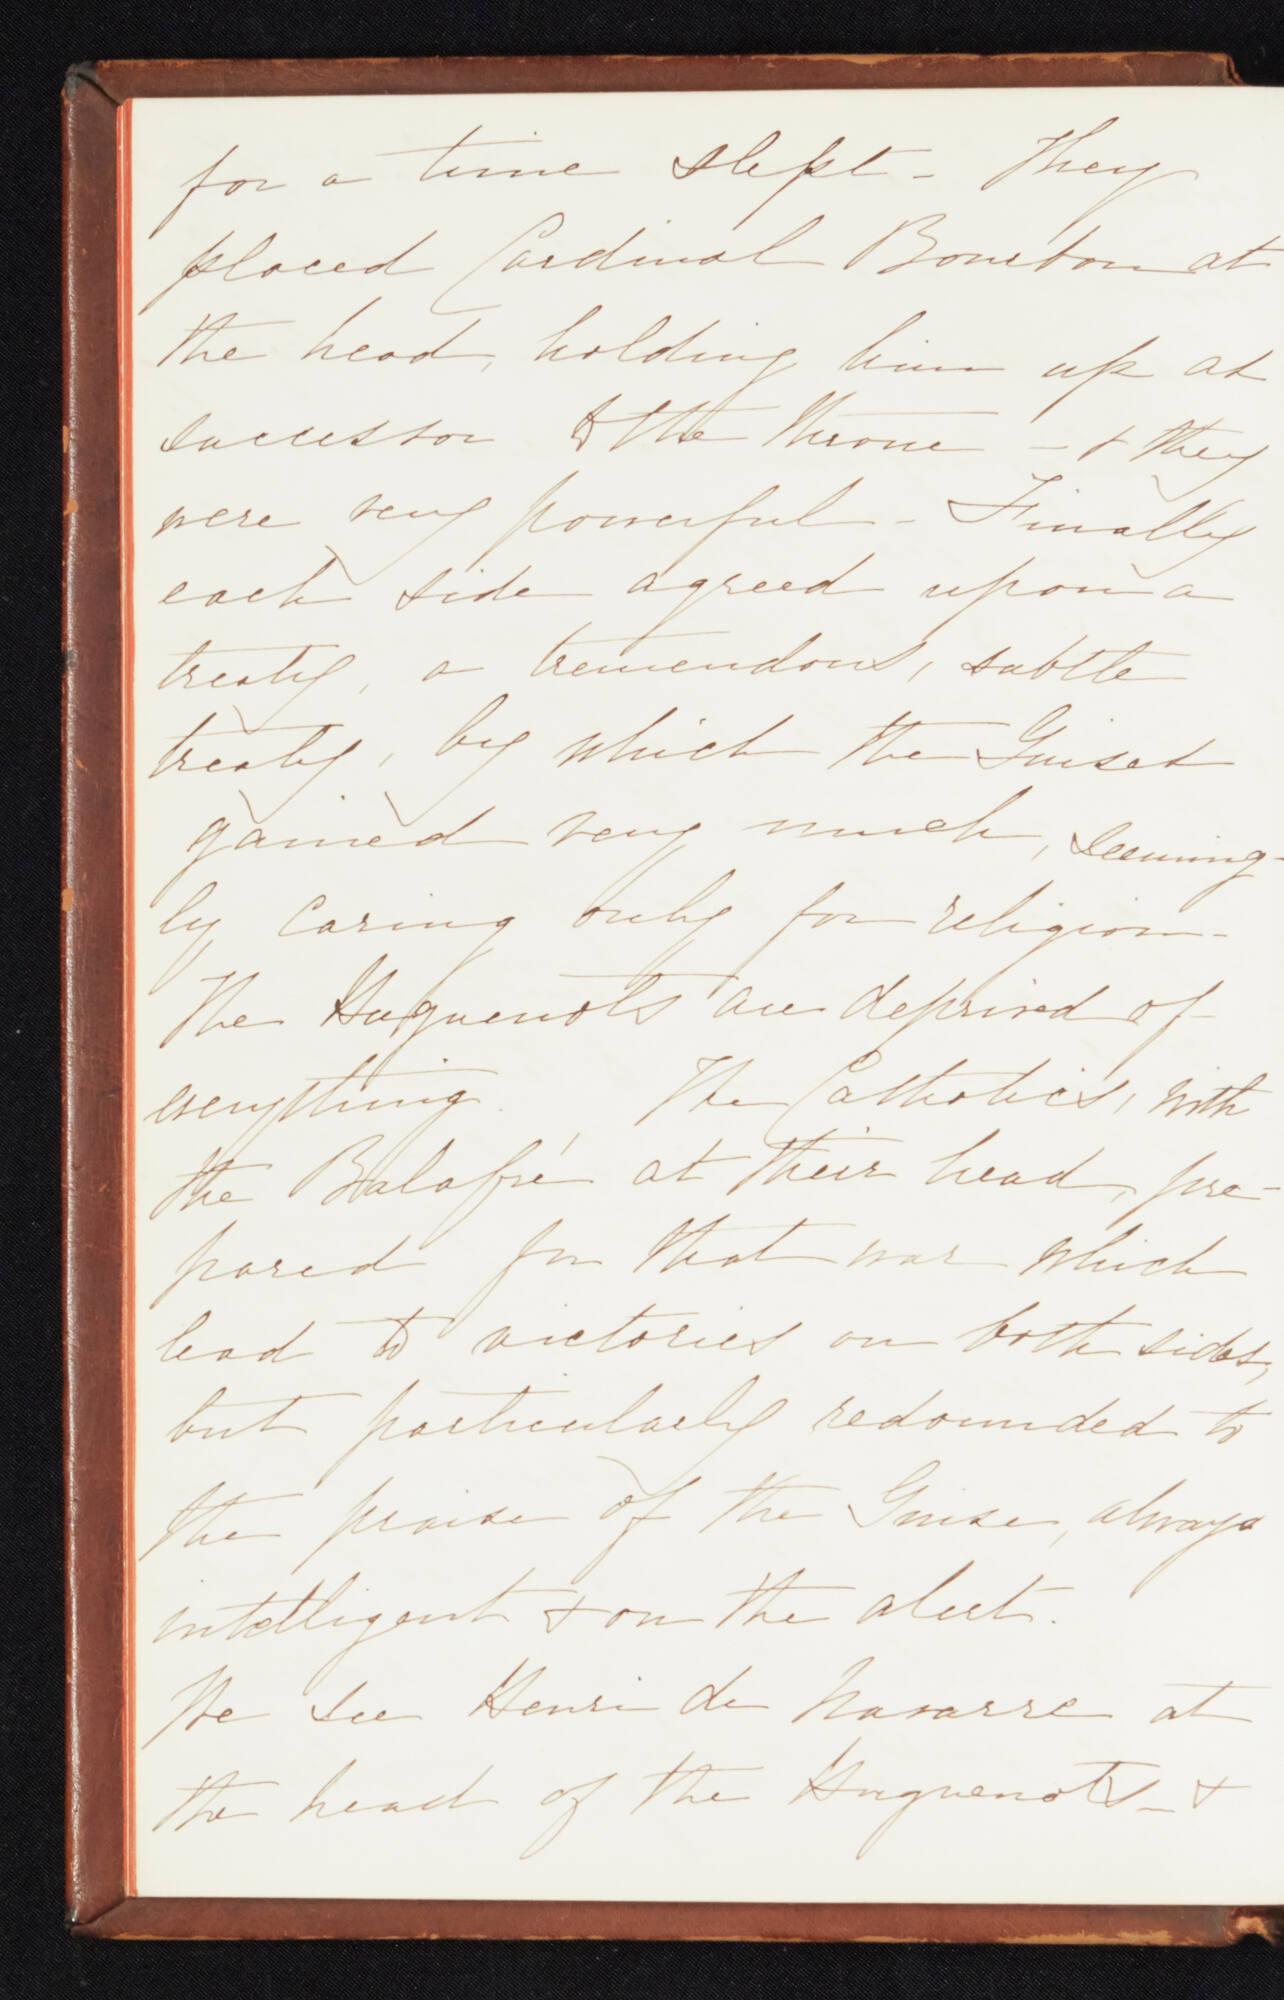 for a time slept - They
placed Cardinal Bourbon at
the head, holding him up as
successor to the throne - & they
were very powerful - Finally
each side agreed upon a
treaty, a tremendous, subtle
treaty, by which the Guises
gained very much, seeming-
ly caring only for religion -
The Huguenots are deprived of
everything. The Catholics, with
the Balafré at their head, pre-
pared for that war which
lead to victories on both sides,
but particularly redounded to
the praise of the Guise, always
intelligent & on the alert.
We see Henri de Navarre at
the head of the Huguenots - &